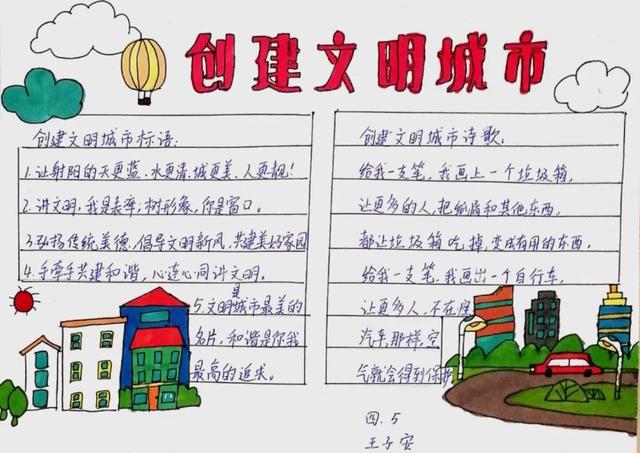 创建文明城市
创建文明城市标语：
1.让射阳的天更蓝.水更清.城更美.人更靓！
2.讲文明，我是表率；树形象，你是窗口。
3.弘扬传统美德，倡导文明新风，共建美好家园
4.手牵手共建和谐，心连心同讲文明。
5.文明城市是最美的
名片，和谐是你我
最高的追求。
创建文明城市诗歌：
给我一支笔，我画上一个垃圾箱，
让更多的人，把纸屑和其他东西，
都让垃圾箱吃掉，变成有用的东西，
给我一支笔，我画出一个自行车，
让更多人，不在坐
汽车，那样，空
气就会得到保护
四.5
王子安